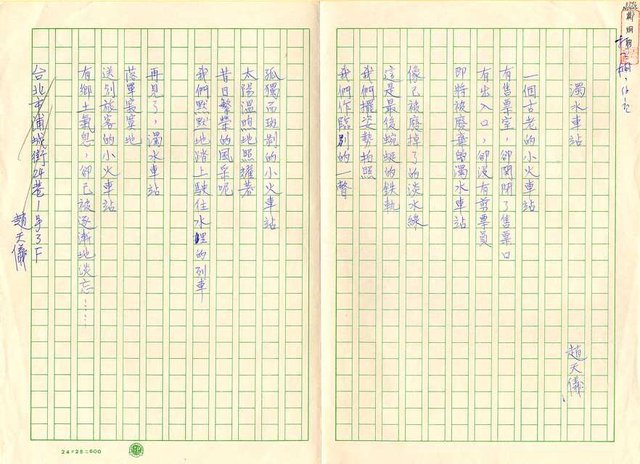 濁水車站
趙天儀
一個古老的小火車站
有售票室，卻關閉了售票口
有出入口，卻沒有剪票員
即將被廢棄的濁水車站
像已被廢掉了的淡水線
這是最後蜿蜒的鉄軌
我們擺姿勢拍照
我們作臨別的一瞥
孤獨而斑剝的小火車站
太陽溫煦地照耀著
昔日繁榮的風采呢
我們默默地踏上駛往水裡的列車
再見了，濁水車站
落單寂寞地
送別旅客的小火車站
有鄉土氣息，卻已被逐漸地淡忘……
台北市浦城街24巷1号3F
趙天儀
24×25=600